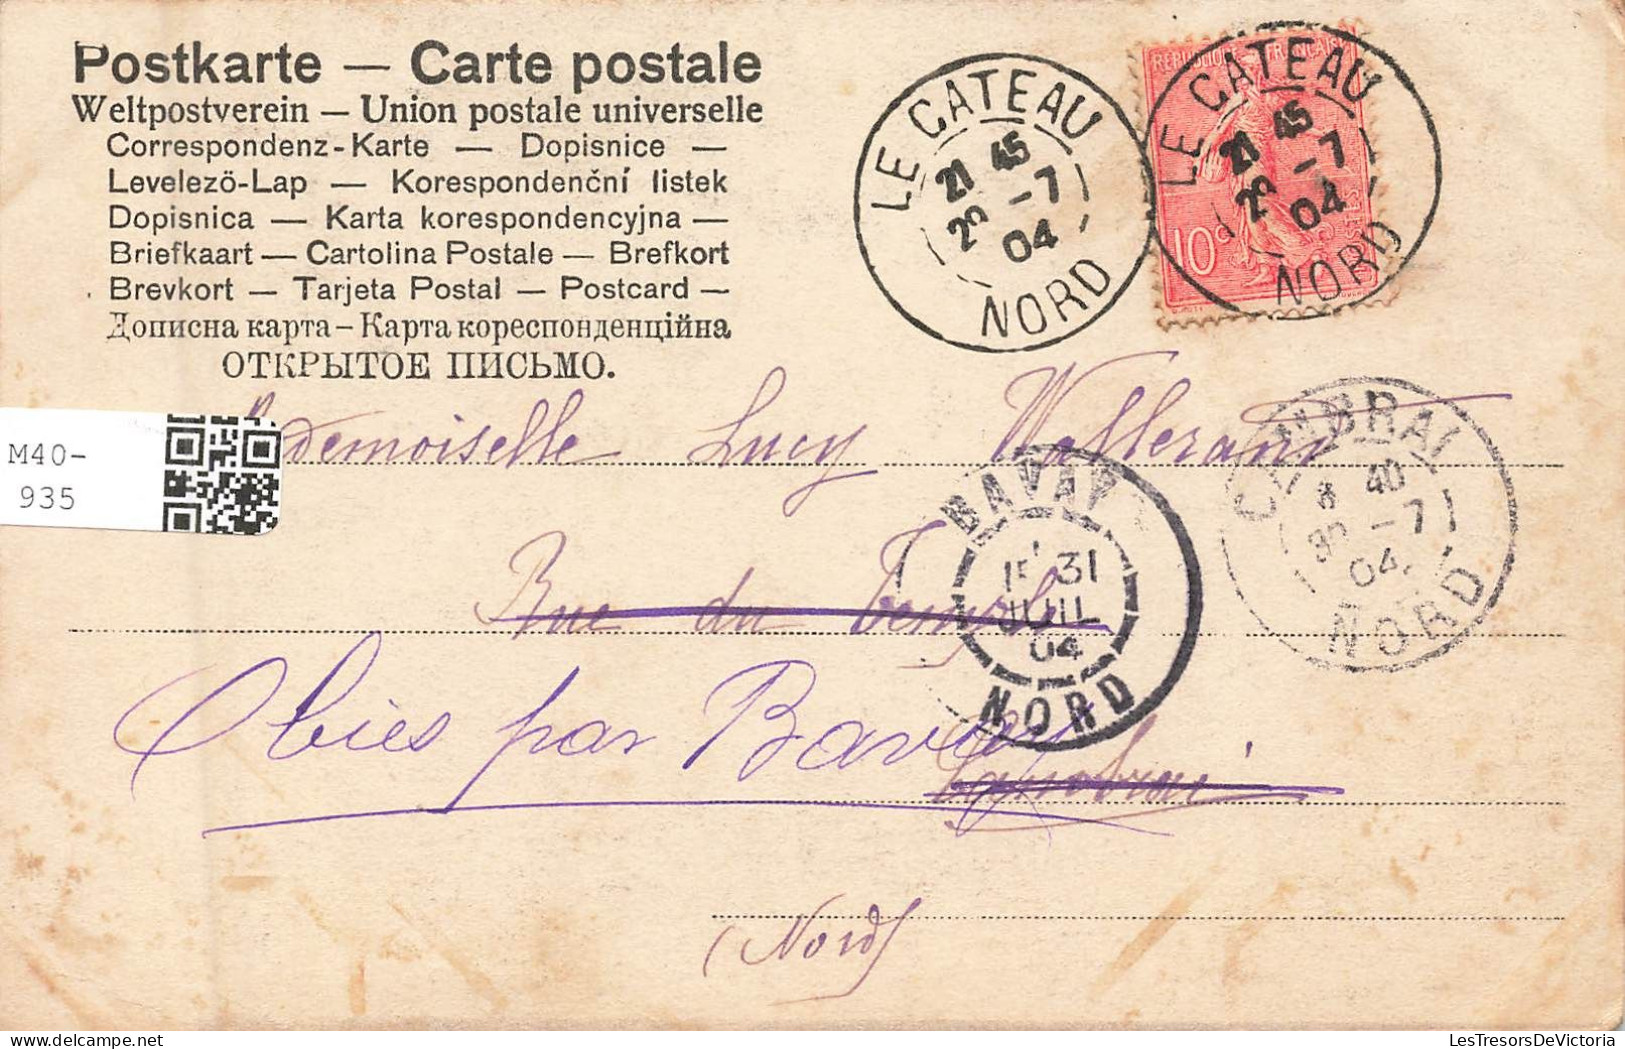 Postkarte — Carte postale
Weltpostverein — Union postale universelle
Correspondenz-Karte — Dopisnice —
Levelezö-Lap — Korespondenční listek
Dopisnica — Karta korespondencyjna —
Briefkaart — Cartolina Postale — Brefkort
Brevkort — Tarjeta Postal — Postcard —
Дописна карта – Карта кореспонденційна
ОТКРЫТОЕ ПИСЬМО.
LE CATEAU
21 45
29 -7
04
NORD
REPUBLIQUE FRANÇAISE
10c
LE CATEAU
21 45
29 -7
04
NORD
Mademoiselle Lucy Wallerand
M40-
935
CAMBRAI
40
30 -7
04
NORD
BAVAY
1E 31
JUIL
04
NORD
Rue du Temple
Obies par Bavay
Cambrai
(Nord)
LesTresorsDeVictoria